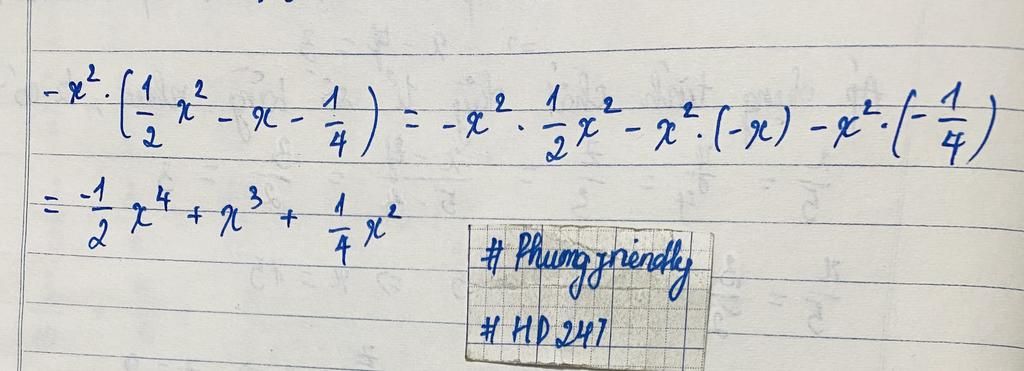 -x². (1/2 x² - x - 1/4) = -x² . 1/2 x² - x² . (-x) - x² . (-1/4)
= -1/2 x⁴ + x³ + 1/4 x²
# Phungfriendly
# HD 247